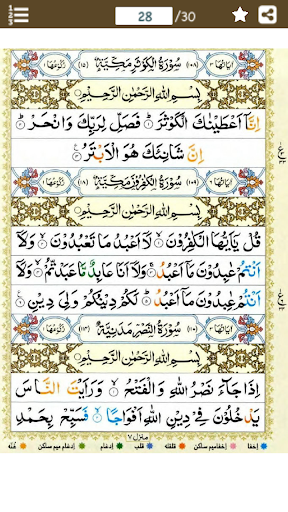 28 /30
سُوْرَةُ الْكَوْثَرِ مَكِّيَّةٌ
بِسْمِ اللهِ الرَّحْمٰنِ الرَّحِيْمِ
اِنَّاۤ اَعْطَيْنٰكَ الْكَوْثَرَ ۞ فَصَلِّ لِرَبِّكَ وَانْحَرْ ۞
اِنَّ شَانِئَكَ هُوَ الْاَبْتَرُ ۞
سُوْرَةُ الْكٰفِرُوْنَ مَكِّيَّةٌ
بِسْمِ اللهِ الرَّحْمٰنِ الرَّحِيْمِ
قُلْ يٰۤاَيُّهَا الْكٰفِرُوْنَ ۞ لَاۤ اَعْبُدُ مَا تَعْبُدُوْنَ ۞ وَلَاۤ
اَنْتُمْ عٰبِدُوْنَ مَاۤ اَعْبُدُ ۞ وَلَاۤ اَنَا عَابِدٌ مَّا عَبَدْتُّمْ ۞ وَلَاۤ
اَنْتُمْ عٰبِدُوْنَ مَاۤ اَعْبُدُ ۞ لَكُمْ دِيْنُكُمْ وَلِيَ دِيْنِ ۞
سُوْرَةُ النَّصْرِ مَدَنِيَّةٌ
بِسْمِ اللهِ الرَّحْمٰنِ الرَّحِيْمِ
اِذَا جَآءَ نَصْرُ اللهِ وَالْفَتْحُ ۞ وَرَاَيْتَ النَّاسَ
يَدْخُلُوْنَ فِيْ دِيْنِ اللهِ اَفْوَاجًا ۞ فَسَبِّحْ بِحَمْدِ
منزل ٧
اخفا اخفامیم ساکن قلقله قلب ادغام ادغام میم ساکن غنه